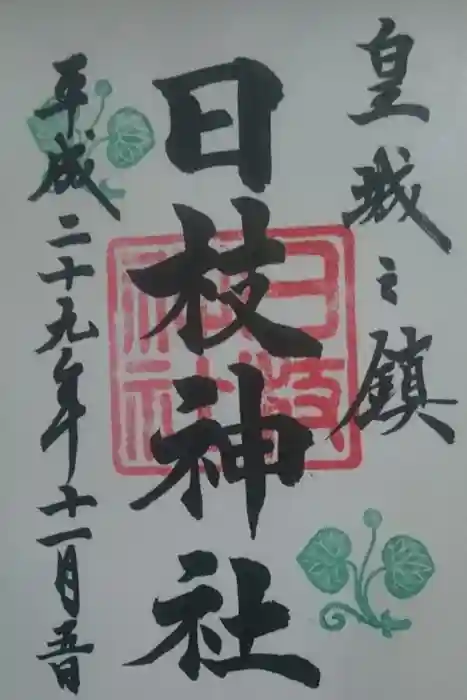 皇城之鎮
日枝神社
日枝神社
平成二十九年十一月吾日